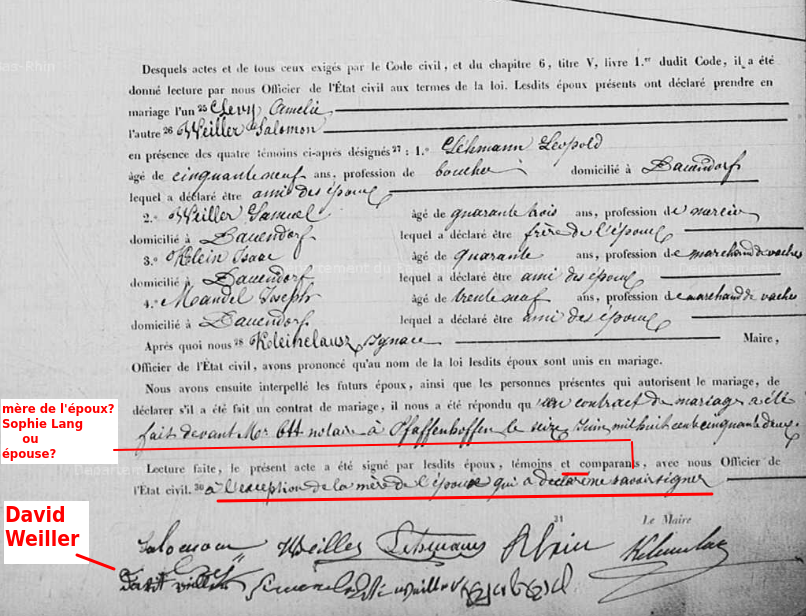 Desquels actes et de tous ceux exigés par le Code civil, et du chapitre 6, titre V, livre 1.er dudit Code, il a été
donné lecture par nous Officier de l'État civil aux termes de la loi. Lesdits époux présents ont déclaré prendre en
mariage l'un 25 Levy Amelie
l'autre 26 Weiller Salomon
en présence des quatre témoins ci-après désignés 27 : 1.o Lehmann Leopold
âgé de cinquante neuf ans, profession de boucher domicilié à Dauendorf
lequel a déclaré être ami des époux
2.o Weiller Samuel âgé de quarante trois ans, profession de
domicilié à Dauendorf lequel a déclaré être frère de l'époux
3.o Klein Isaac âgé de quarante ans, profession de marchand de vaches
domicilié à Dauendorf lequel a déclaré être ami des époux
4.o Mandel Joseph âgé de trente neuf ans, profession de marchand de vaches
domicilié à Dauendorf lequel a déclaré être ami des époux
Après quoi nous 28 Ignace Maire,
Officier de l'État civil, avons prononcé qu'au nom de la loi lesdits époux sont unis en mariage.
Nous avons ensuite interpellé les futurs époux, ainsi que les personnes présentes qui autorisent le mariage, de
déclarer s'il a été fait un contrat de mariage, il nous a été répondu qu'un contract de mariage a été
fait devant Me Ott notaire à Pfaffenhoffen le seize Juin mil huit cent cinquante deux.
mère de l'époux?
Sophie Lang
ou
épouse?
Lecture faite, le présent acte a été signé par lesdits époux, témoins et comparants, avec nous Officier de
l'État civil. 30 à l'exception de la mère de l' qui a déclaré ne savoir signer
31 Le Maire
David
Weiller
Salomon Weiller Lehmann